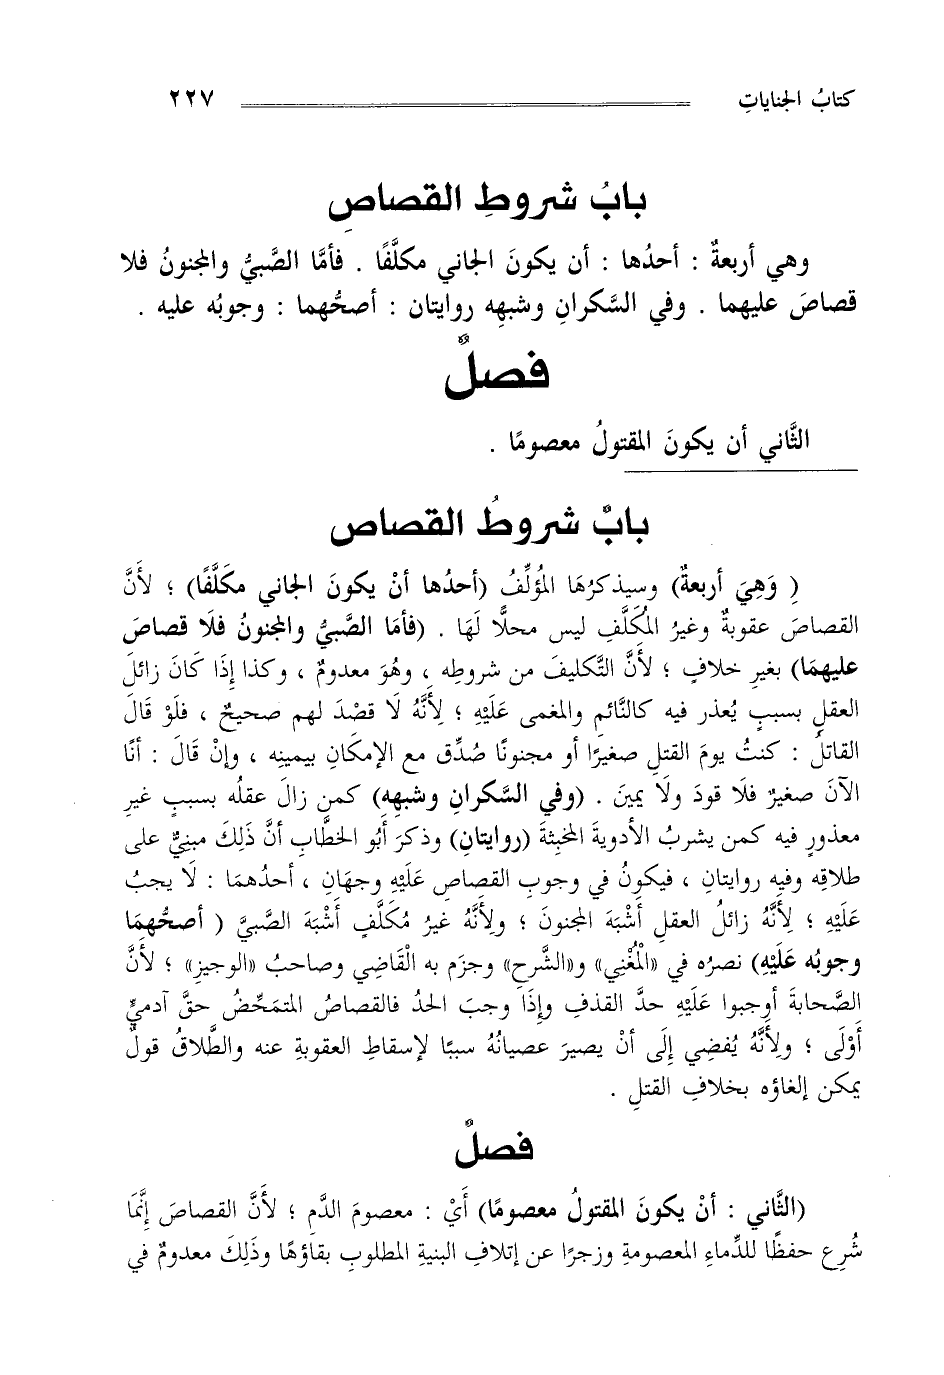 كتابُ الجناياتِ ٢٢٧
بابُ شروطِ القصاصِ
وهي أربعةٌ : أحدُها : أن يكونَ الجاني مكلَّفًا . فأمَّا الصَّبيُّ والمجنونُ فلا
قصاصَ عليهما . وفي السَّكرانِ وشبهِه روايتان : أصحُّهما : وجوبُه عليه .
فصلٌ
الثَّاني أن يكونَ المقتولُ معصومًا .
بابٌ شروطُ القصاص
( وَهِيَ أربعةٌ) وسيذكرُهَا المُؤلِّفُ (أحدُها أنْ يكونَ الجاني مكَلَّفًا) ؛ لأَنَّ
القصاصَ عقوبةٌ وغيرُ المُكَلَّفِ ليس محلًّا لَهَا . (فأمَا الصَّبيُّ والمجنونُ فلَا قصاصَ
عليهمَا) بغيرِ خلافٍ ؛ لأَنَّ التَّكليفَ من شروطِه ، وهُوَ معدومٌ ، وكذا إِذَا كَانَ زائلَ
العقلِ بسببٍ يُعذر فيه كالنَّائمِ والمغمى عَلَيْهِ ؛ لِأَنَّهُ لَا قصْدَ لهم صحيحٌ ، فلَوْ قَالَ
القاتلُ : كنتُ يومَ القتلِ صغيرًا أو مجنونًا صُدِّق مع الإمكانِ بيمينِه ، وإنْ قَالَ : أنَا
الآنَ صغيرٌ فلَا قودَ ولَا يمينَ . (وفي السَّكرانِ وشبهِه) كمن زالَ عقلُه بسببٍ غيرِ
معذورٍ فيه كمن يشربُ الأدويةَ المخبِثةَ (روايتانِ) وذكرَ أَبُو الخطَّابِ أنَّ ذَلِكَ مبنيٌّ على
طلاقِه وفيه روايتانِ ، فيكونُ في وجوبِ القصاصِ عَلَيْهِ وجهَانِ ، أحدُهمَا : لَا يجبُ
عَلَيْهِ ؛ لِأَنَّهُ زائلُ العقلِ أشْبَهَ المجنونَ ؛ ولِأَنَّهُ غيرُ مُكَلَّفٍ أشْبَهَ الصَّبيَّ ( أصحُّهمَا
وجوبُه عَلَيْهِ) نصرُه في «الْمُغْنِي» و«الشَّرحِ» وجزَم به الْقَاضِي وصاحبُ «الوجيزِ» ؛ لأَنَّ
الصَّحابةَ أوجبوا عَلَيْهِ حدَّ القذفِ وإِذَا وجبَ الحدُ فالقصاصُ المتمَحِّضُ حقَّ آدميٍّ
أَوْلَى ؛ ولِأَنَّهُ يُفضِي إِلَى أنْ يصيرَ عصيانُهُ سببًا لإسقاطِ العقوبةِ عنه والطَّلاقُ قولٌ
يمكن إلغاؤه بخلافِ القتلِ .
فصلٌ
(الثَّاني : أنْ يكونَ المقتولُ معصومًا) أَيْ : معصومَ الدَّمِ ؛ لأَنَّ القصاصَ إِنَّمَا
شُرِع حفظًا للدِّماءِ المعصومةِ وزجرًا عن إتلافِ البنيةِ المطلوبِ بقاؤهَا وذَلِكَ معدومٌ في